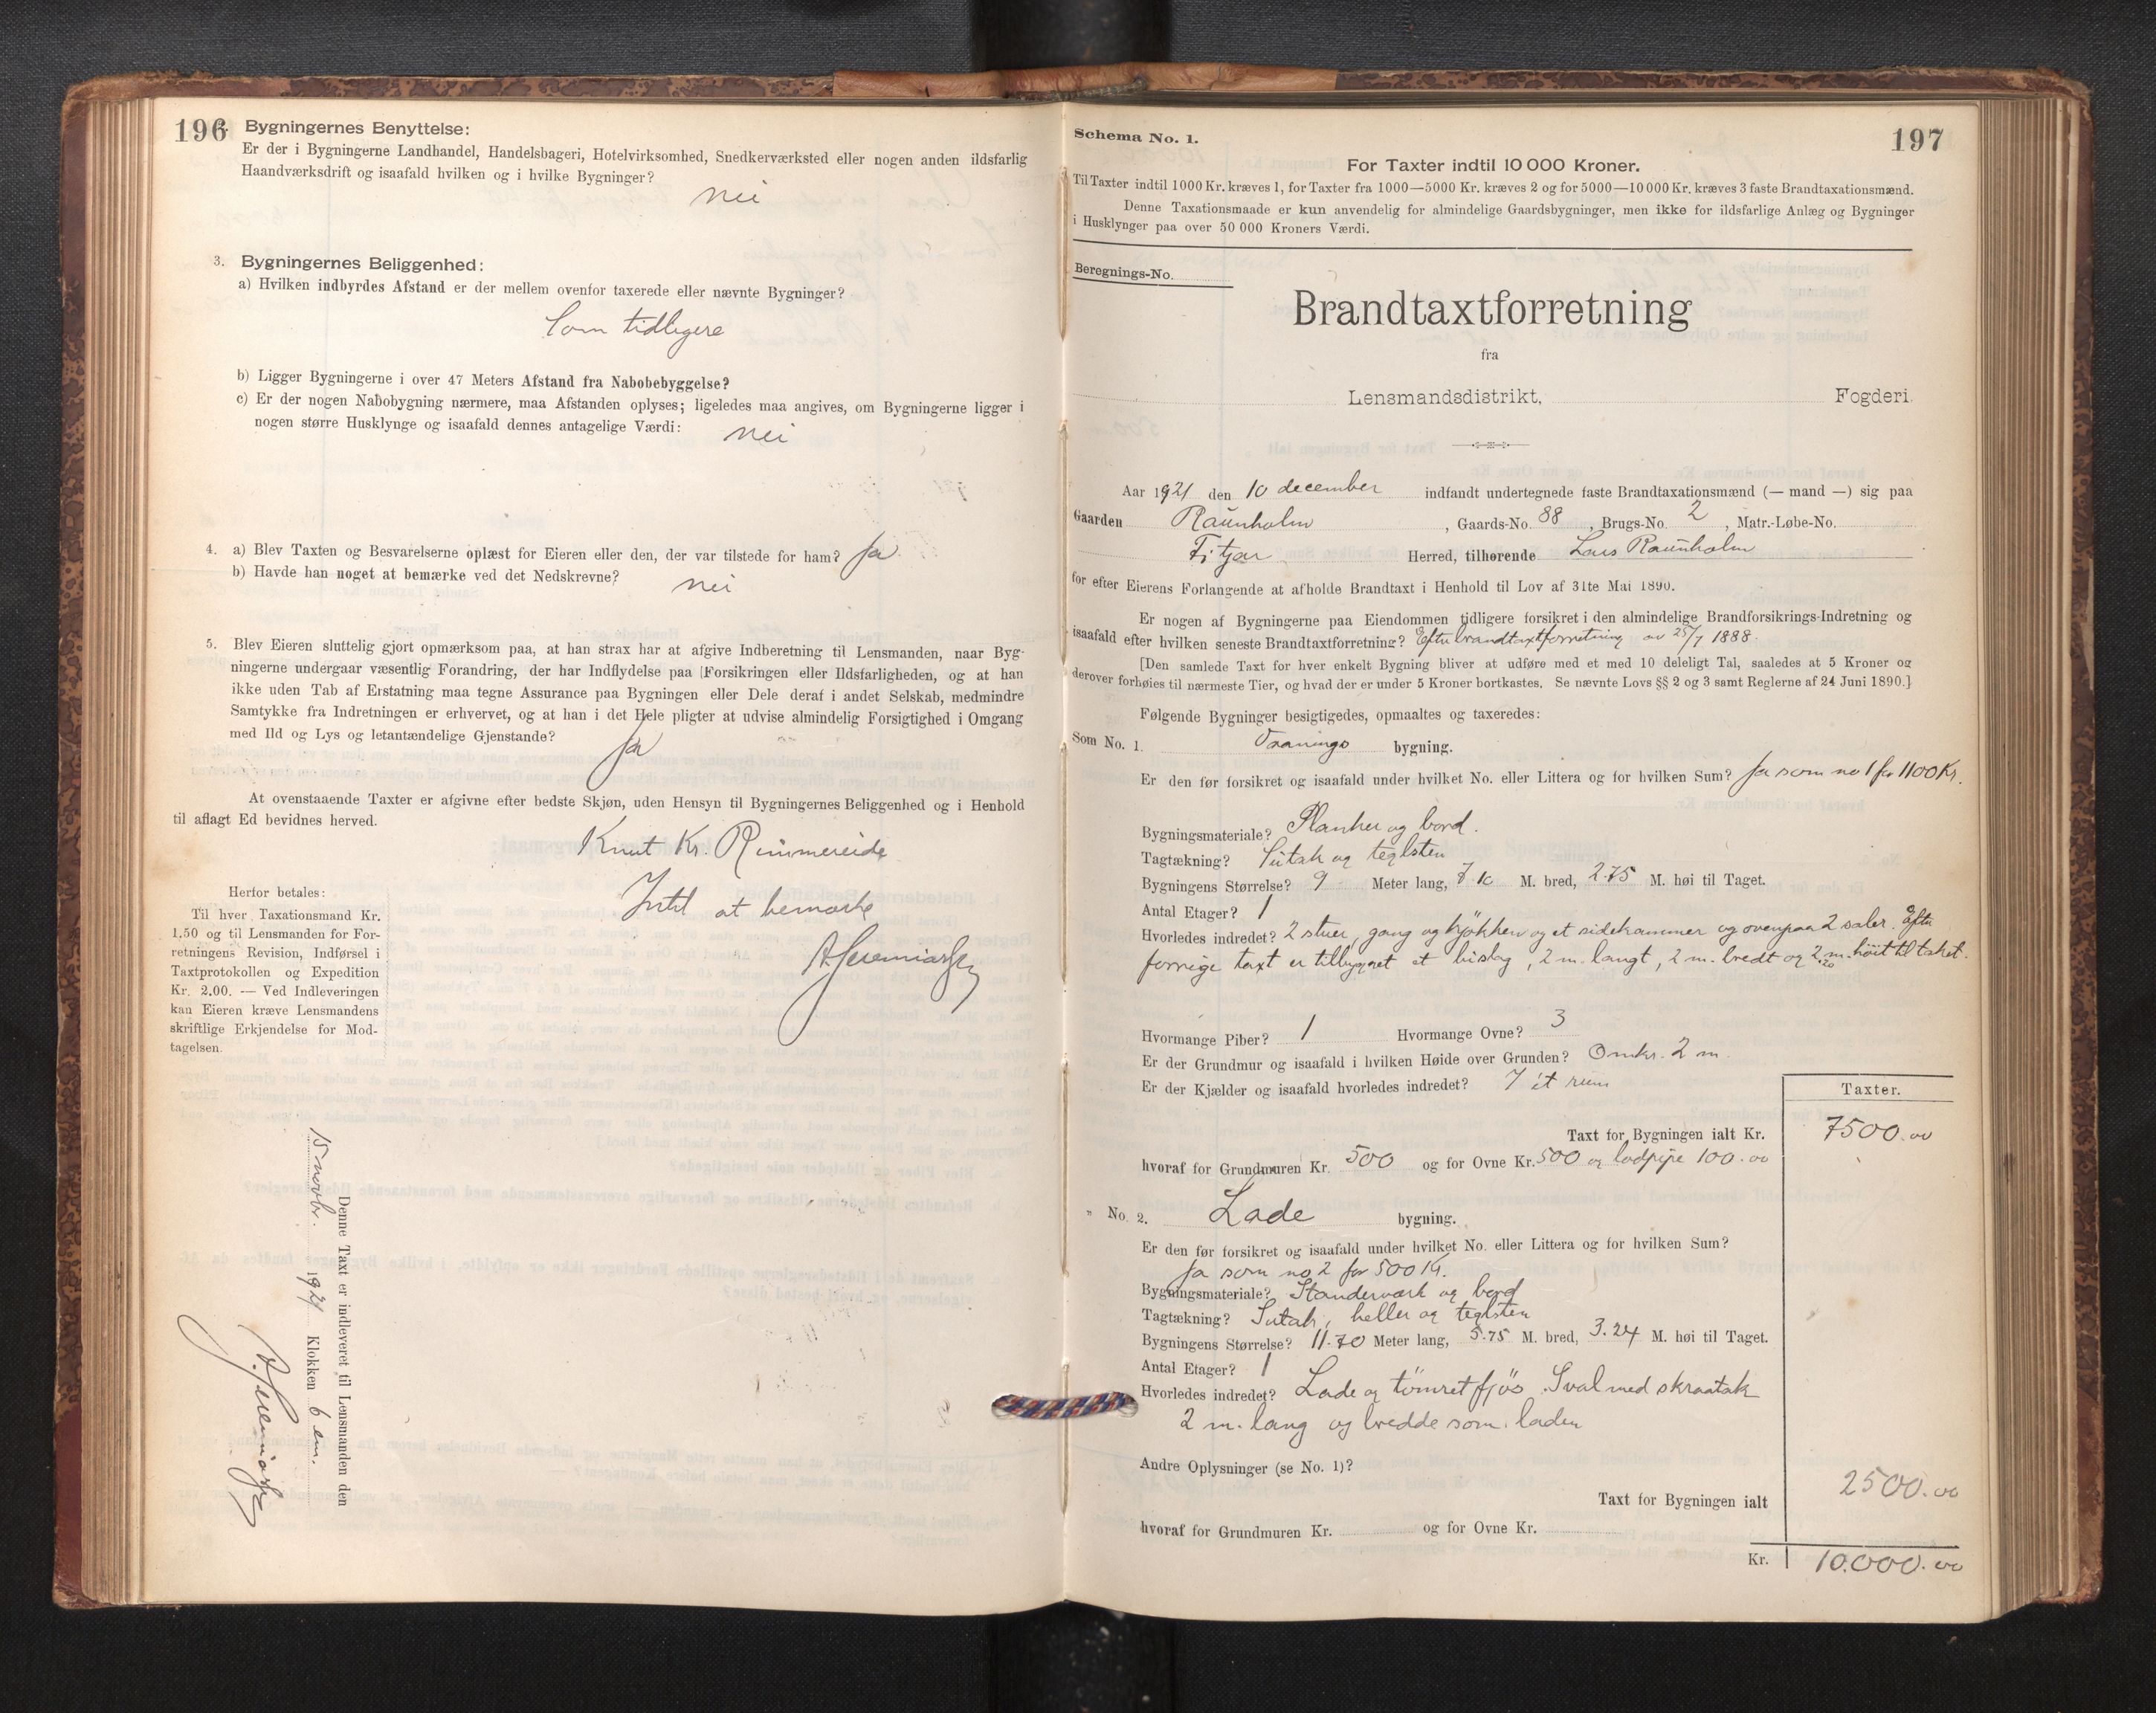 196
2. Bygningernes Benyttelse:
Er der i Bygningerne Landhandel, Handelsbageri, Hotelvirksomhed, Snedkerværksted eller nogen anden ildsfarlig
Haandværksdrift og isaafald hvilken og i hvilke Bygninger?
nei
3. Bygningernes Beliggenhed:
a) Hvilken indbyrdes Afstand er der mellem ovenfor taxerede eller nævnte Bygninger?
Som tidligere
b) Ligger Bygningerne i over 47 Meters Afstand fra Nabobebyggelse?
c) Er der nogen Nabobygning nærmere, maa Afstanden oplyses; ligeledes maa angives, om Bygningerne ligger i
nogen større Husklynge og isaafald dennes antagelige Værdi: nei
4. a) Blev Taxten og Besvarelserne oplæst for Eieren eller den, der var tilstede for ham? Ja
b) Havde han noget at bemærke ved det Nedskrevne? nei
5. Blev Eieren sluttelig gjort opmærksom paa, at han strax har at afgive Indberetning til Lensmanden, naar Byg-
ningerne undergaar væsentlig Forandring, der har Indflydelse paa Forsikringen eller Ildsfarligheden, og at han
ikke uden Tab af Erstatning maa tegne Assurance paa Bygningen eller Dele deraf i andet Selskab, medmindre
Samtykke fra Indretningen er erhvervet, og at han i det Hele pligter at udvise almindelig Forsigtighed i Omgang
med Ild og Lys og letantændelige Gjenstande? Ja
At ovenstaaende Taxter er afgivne efter bedste Skjøn, uden Hensyn til Bygningernes Beliggenhed og i Henhold
til aflagt Ed bevidnes herved.
Knut Kr. Rimmereide
Intet at bemærke
Herfor betales:
Til hver Taxationsmand Kr.
1,50 og til Lensmanden for For-
retningens Revision, Indførsel i
Taxtprotokollen og Expedition
Kr. 2.00. — Ved Indleveringen
kan Eieren kræve Lensmandens
skriftlige Erkjendelse for Mod-
tagelsen.
Denne Taxt er indleveret til Lensmanden den
15 novbr. 1921 Klokken 6 em.
197
Schema No. 1.
For Taxter indtil 10 000 Kroner.
Til Taxter indtil 1000 Kr. kræves 1, for Taxter fra 1000—5000 Kr. kræves 2 og for 5000—10 000 Kr. kræves 3 faste Brandtaxationsmænd.
Denne Taxationsmaade er kun anvendelig for almindelige Gaardsbygninger, men ikke for ildsfarlige Anlæg og Bygninger
i Husklynger paa over 50 000 Kroners Værdi.
Beregnings-No.
Brandtaxtforretning
fra
Lensmandsdistrikt, Fogderi.
Aar 1921 den 10 december indfandt undertegnede faste Brandtaxationsmænd (— mand —) sig paa
Gaarden Raunholm, Gaards-No. 88, Brugs-No. 2, Matr.-Løbe-No.
Fitjar Herred, tilhørende Lars Raunholm
for efter Eierens Forlangende at afholde Brandtaxt i Henhold til Lov af 31te Mai 1890.
Er nogen af Bygningerne paa Eiendommen tidligere forsikret i den almindelige Brandforsikrings-Indretning og
isaafald efter hvilken seneste Brandtaxtforretning? Efter brandtaxtforretning av 25/7 1888.
[Den samlede Taxt for hver enkelt Bygning bliver at udføre med et med 10 deleligt Tal, saaledes at 5 Kroner og
derover forhøies til nærmeste Tier, og hvad der er under 5 Kroner bortkastes. Se nævnte Lovs §§ 2 og 3 samt Reglerne af 24 Juni 1890.]
Følgende Bygninger besigtigedes, opmaaltes og taxeredes:
Som No. 1. Vaanings bygning.
Er den før forsikret og isaafald under hvilket No. eller Littera og for hvilken Sum? Ja som no 1 for 1100 Kr.
Bygningsmateriale? Planker og bord.
Tagtækning? Sutak og teglsten
Bygningens Størrelse? 9 Meter lang, 7.10 M. bred, 2.75 M. høi til Taget.
Antal Etager? 1
Hvorledes indredet? 2 stuer, gang og kjøkken og et sidekammer og ovenpaa 2 saler. Efter
forrige taxt er tilbygget et bislag, 2 m. langt, 2 m. bredt og 2.20 m. høit til taket.
Hvormange Piber? 1 Hvormange Ovne? 3
Er der Grundmur og isaafald i hvilken Høide over Grunden? Omkr. 2 m.
Er der Kjælder og isaafald hvorledes indredet? I et rum
Taxter.
Taxt for Bygningen ialt Kr. 7500.00
hvoraf for Grundmuren Kr. 500 og for Ovne Kr. 500 og lodpipe 100.00
" No. 2. Lade bygning.
Er den før forsikret og isaafald under hvilket No. eller Littera og for hvilken Sum?
Ja som no 2 for 500 Kr.
Bygningsmateriale? Standerværk og bord
Tagtækning? Sutak, heller og teglsten
Bygningens Størrelse? 11.70 Meter lang, 5.75 M. bred, 3.24 M. høi til Taget.
Antal Etager? 1
Hvorledes indredet? Lade og tømret fjøs. Sval med skraatak
2 m. lang og bredde som laden
Andre Oplysninger (se No. 1)?
Taxt for Bygningen ialt 2500.00
hvoraf for Grundmuren Kr. og for Ovne Kr.
Kr. 10.000.00